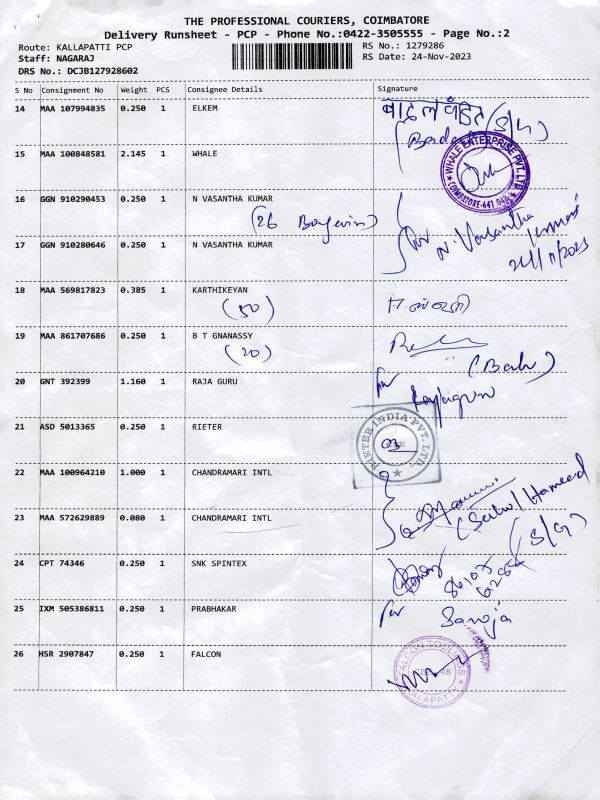 THE PROFESSIONAL COURIERS, COIMBATORE
Delivery Runsheet - PCP - Phone No.:0422-3505555 - Page No.:2
Route: KALLAPATTI PCP RS No.: 1279286
Staff: NAGARAJ RS Date: 24-Nov-2023
DRS No.: DCJB127928602
S No Consignment No Weight PCS Consignee Details Signature
14 MAA 107994835 0.250 1 ELKEM
15 MAA 100848581 2.145 1 WHALE
WHALE ENTERPRISE PVT. LTD
COIMBATORE-641
16 GGN 910290453 0.250 1 N VASANTHA KUMAR
(26
17 GGN 910280646 0.250 1 N VASANTHA KUMAR
N. Vasantha
24/11/2023
18 MAA 569817823 0.385 1 KARTHIKEYAN
(50)
19 MAA 861707686 0.250 1 B T GNANASSY
(20)
20 GNT 392399 1.160 1 RAJA GURU
for
21 ASD 5013365 0.250 1 RIETER
RIETER INDIA PVT. LTD.
22 MAA 100964210 1.000 1 CHANDRAMARI INTL
23 MAA 572629889 0.080 1 CHANDRAMARI INTL
(S/G)
24 CPT 74346 0.250 1 SNK SPINTEX
25 IXM 505386811 0.250 1 PRABHAKAR
for Saroja
26 HSR 2907847 0.250 1 FALCON
FALCON TOOLINGS